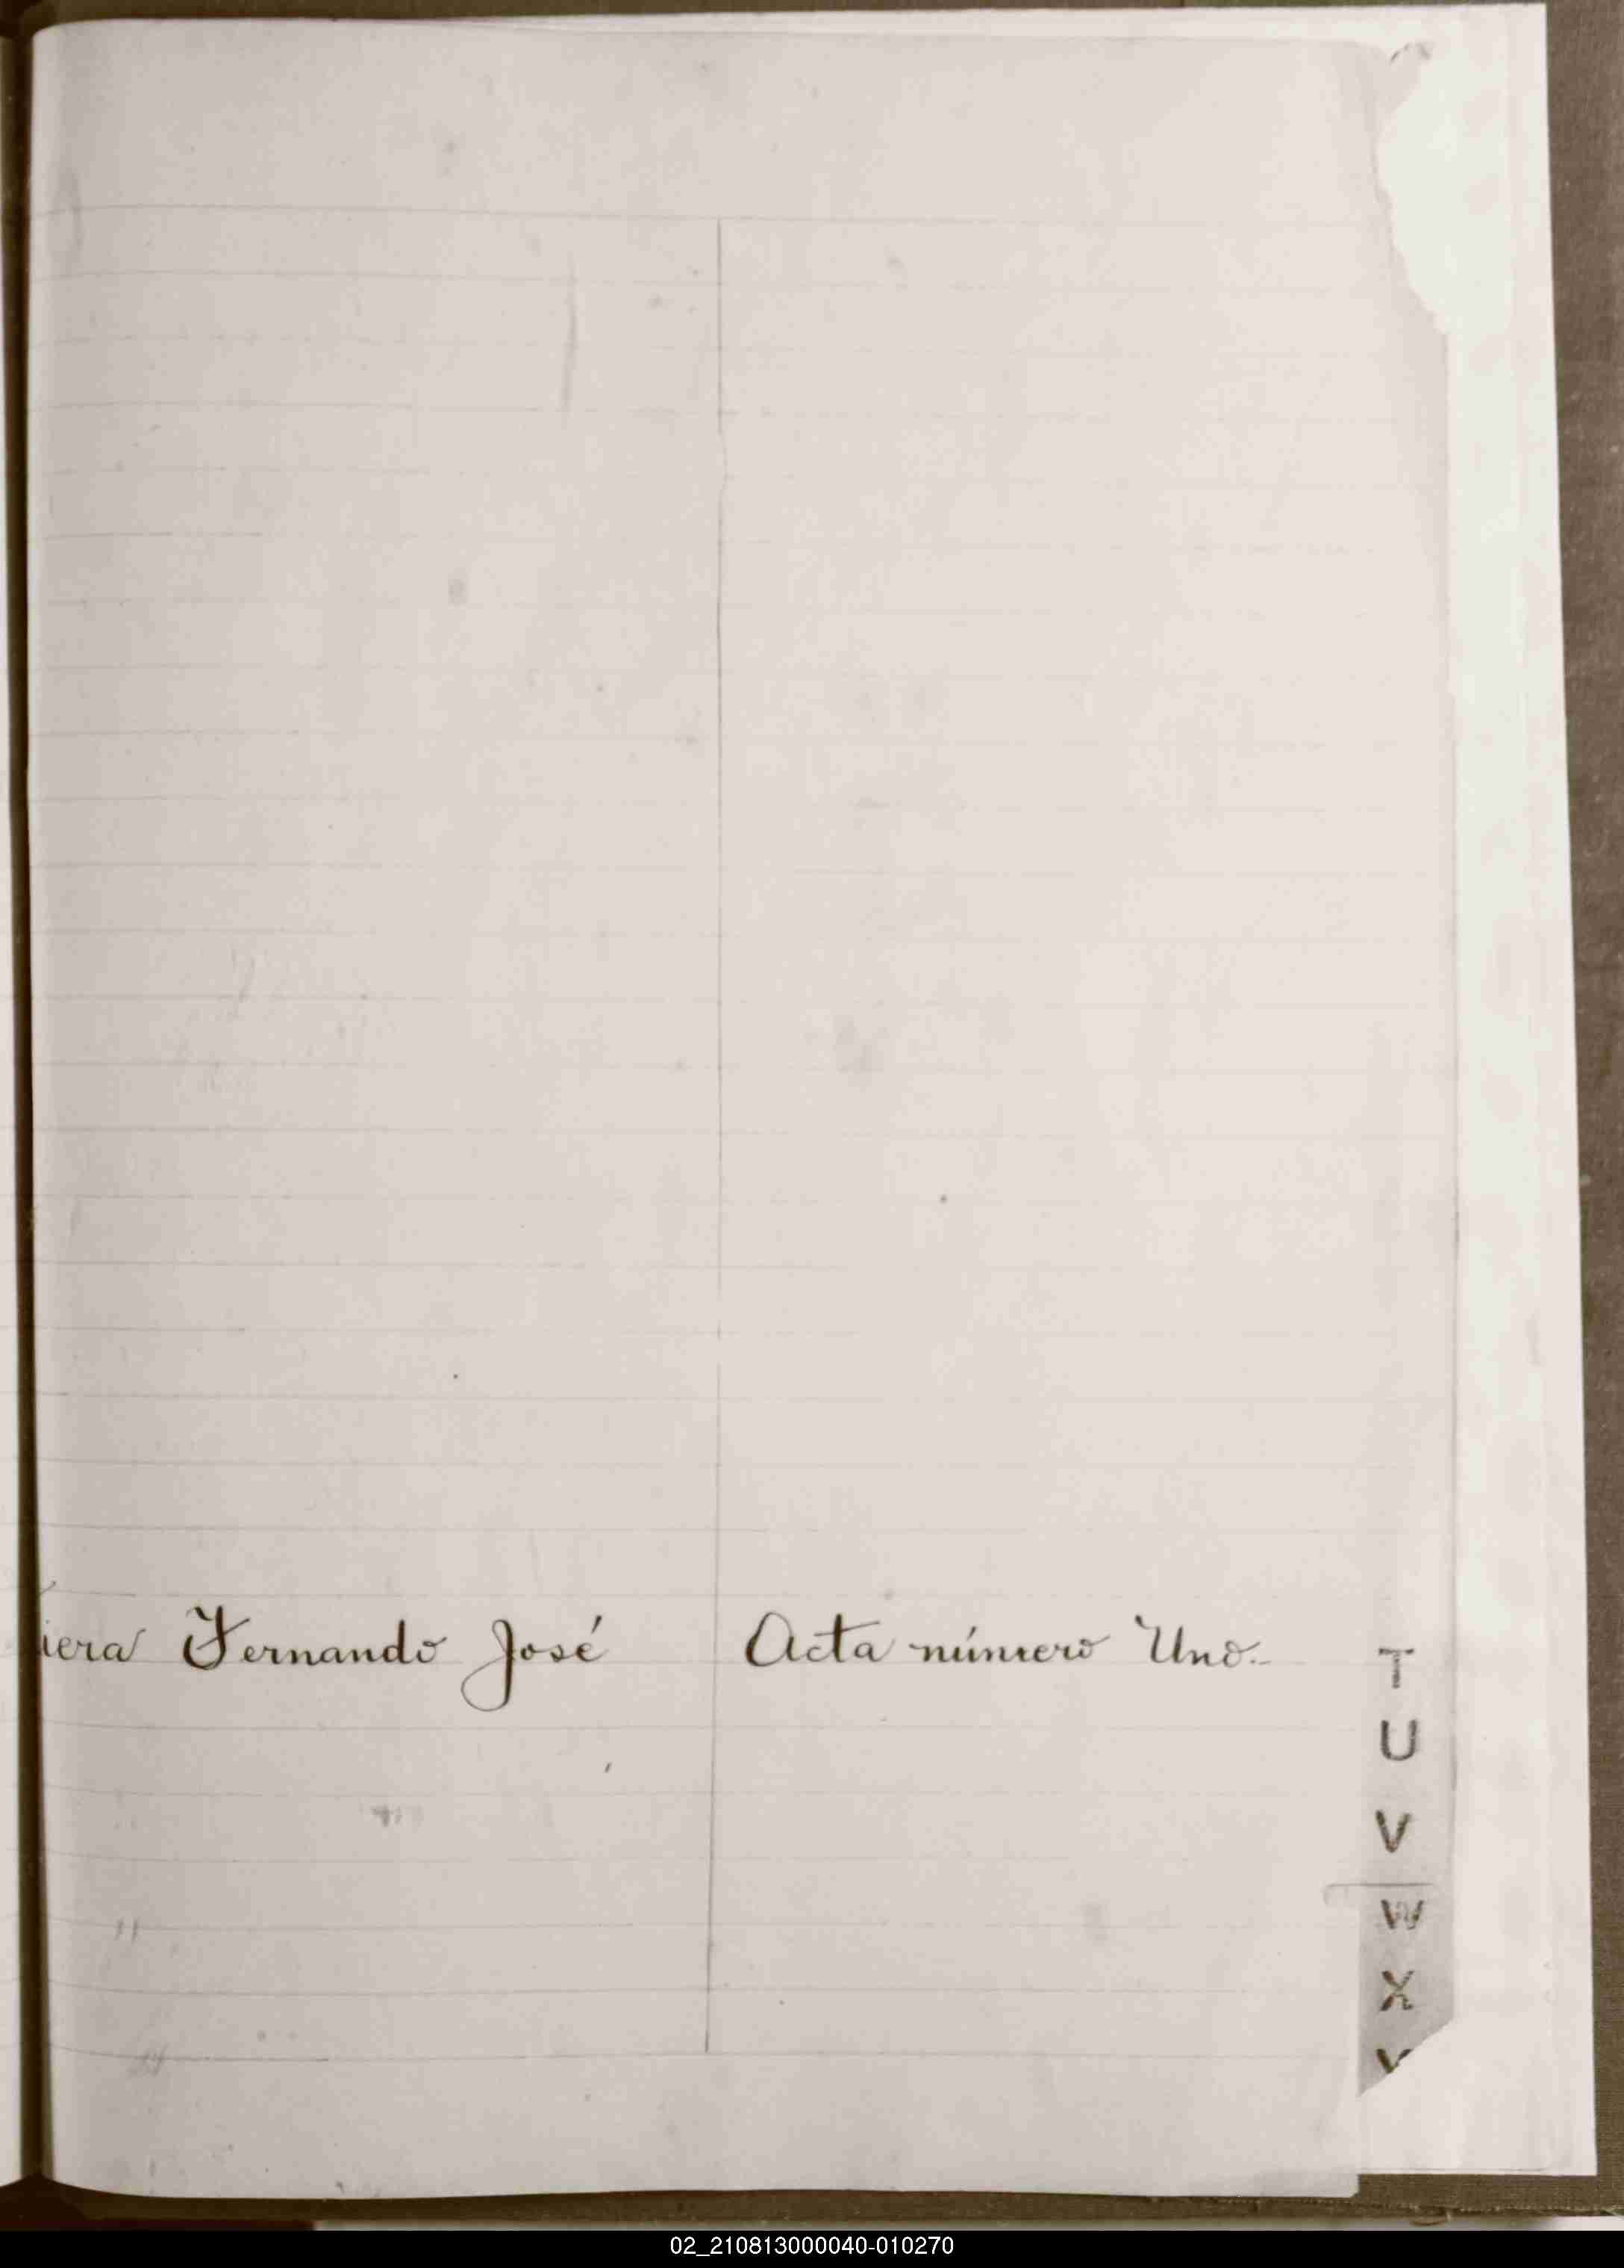 iera Fernando José Acta número Uno.-
T
U
V
W
X
Y
02_210813000040-010270